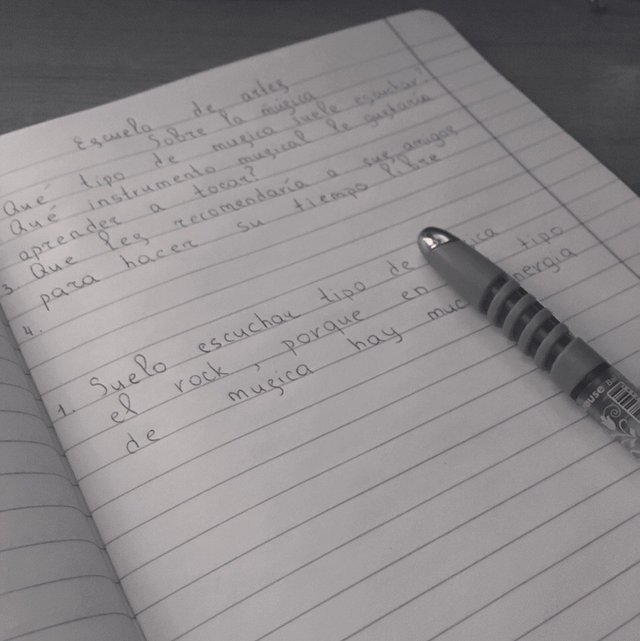 Escuela de artes
Sobre la música
Qué tipo de musica suele escuchar?
Qué instrumento musical le gustaria
aprender a tocar?
3. Que les recomendaría a sus amigos
para hacer su tiempo libre
4.
1. Suelo escuchar tipo de
el rock, porque en tipo
de musica hay energia